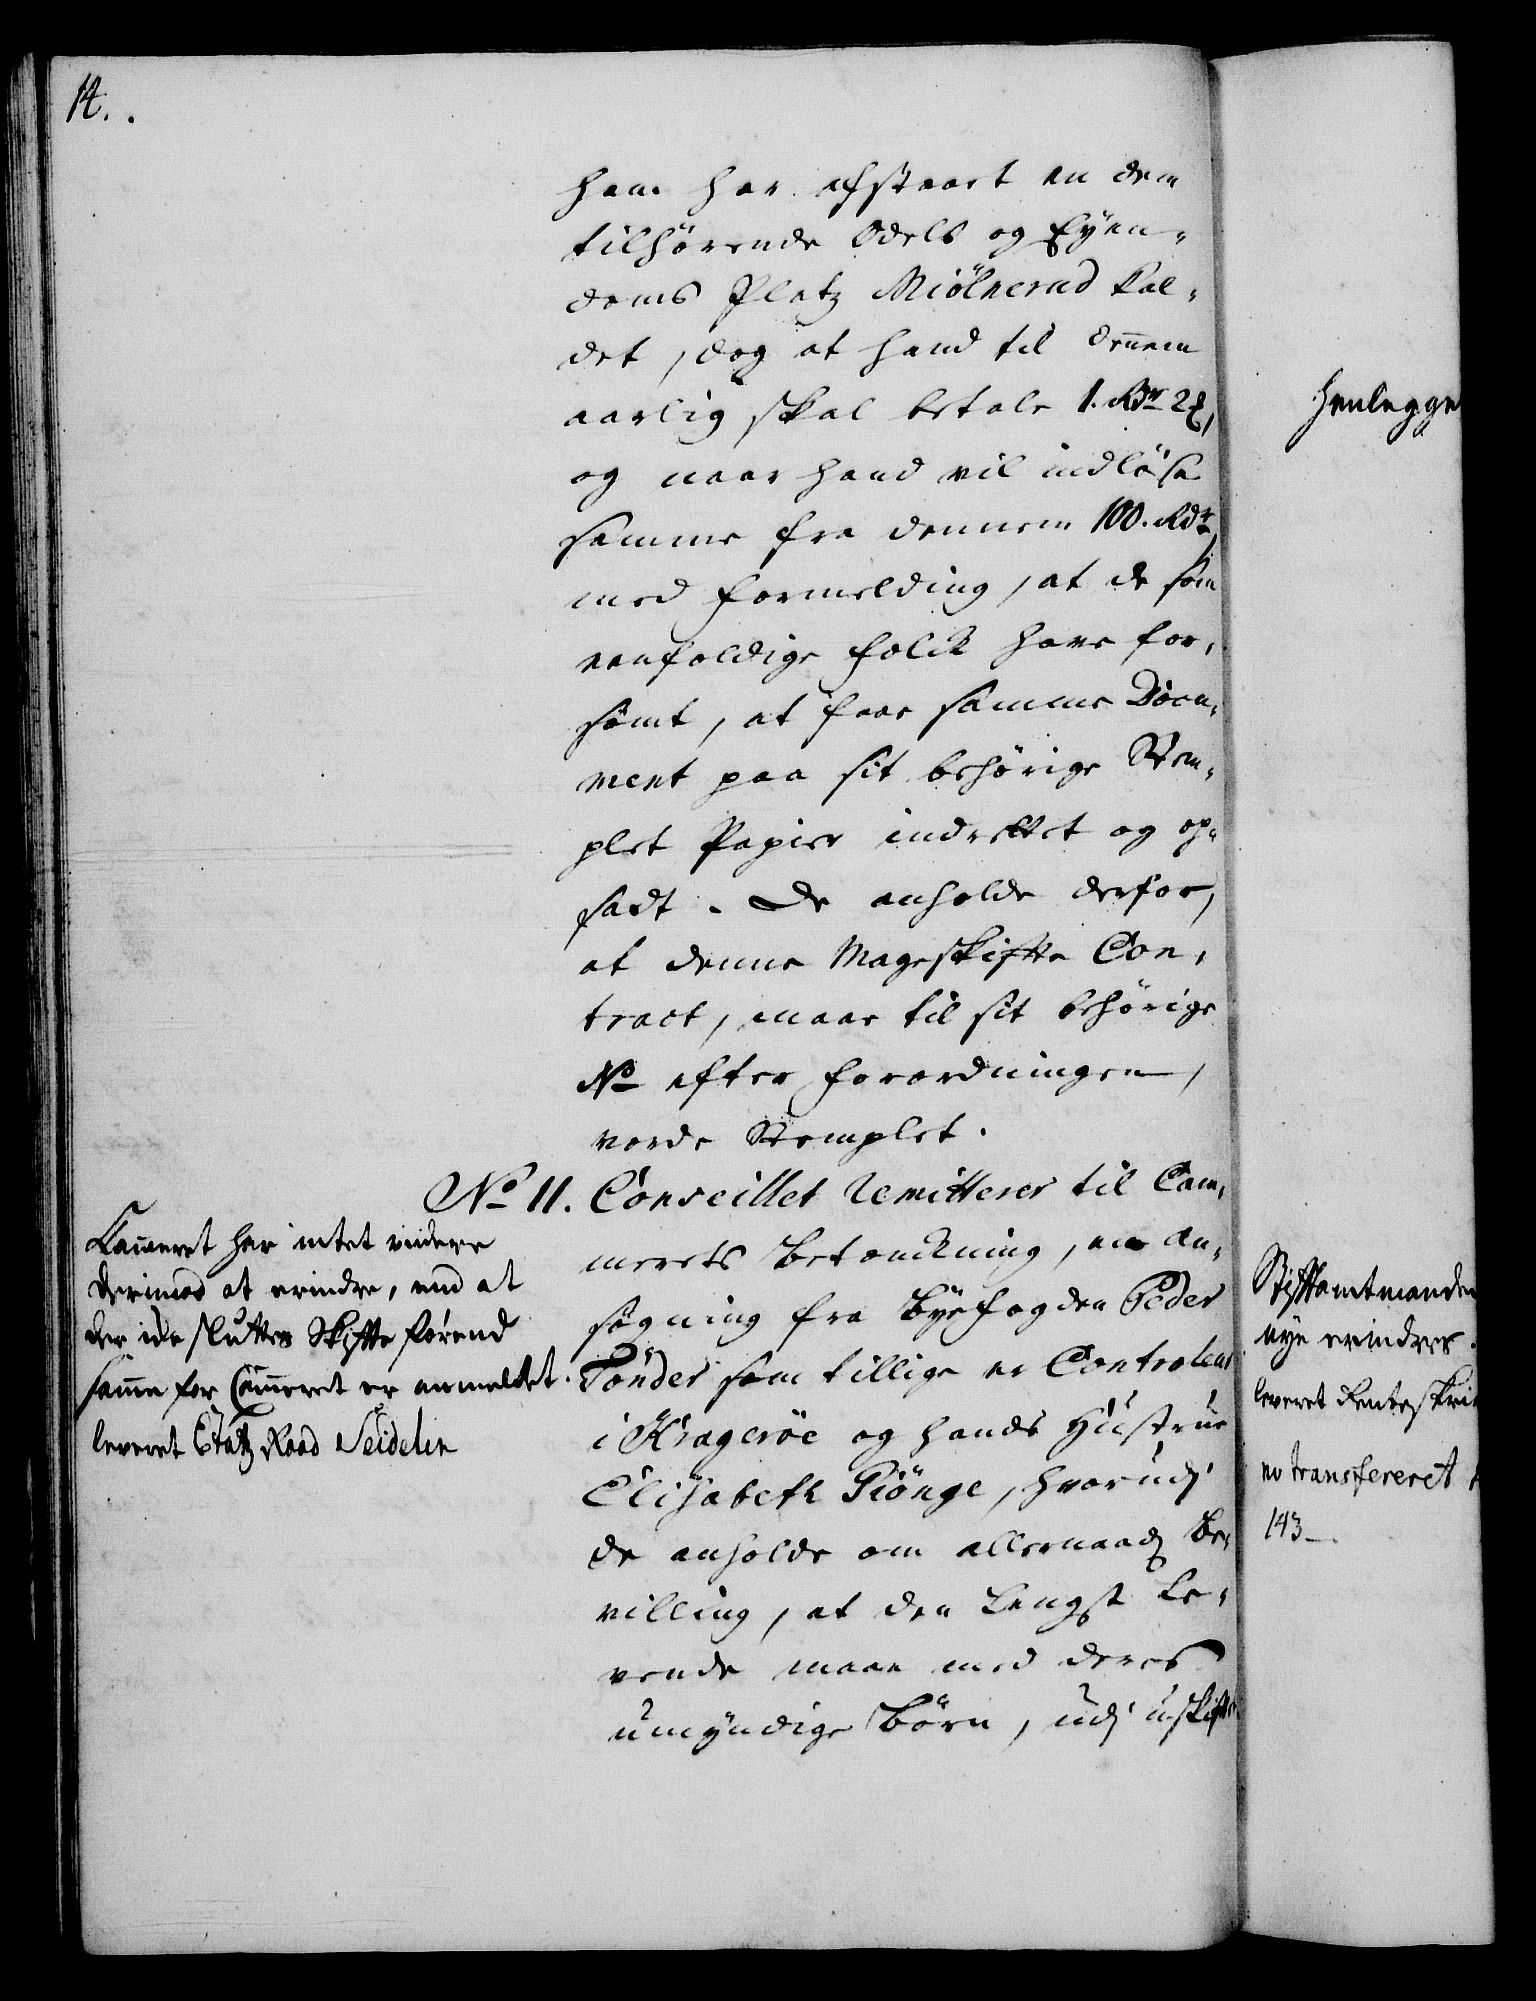 14.
ham har afstaaet en dem
tilhörende Odels og Eyen-
doms Platz Miölnerud kal-
det, dog at hand til dennem
aarlig skal betale 1. Rdr 2ß,
og naar hand vil indlöse
samme fra dennem 100. Rdr
med formelding, at de som
eenfoldige folck have for-
sömt, at faae samme Docu-
ment paa sit behörige Stem-
plet Papier indrettet og op-
sadt. De anholde derfor,
at denne Mageskifte Con-
tract, maae til sit behörige
No efter forordningen,
vorde Stemplet.
No 11. Conseillet Remitterer til Cam-
merets betænckning, en An-
sögning fra Byefogden Peder
Tönder som tillige er Controleur
i Krageröe og hands Hustrue
Elisabeth Giönge, hvorudj
de anholde om allernaadj Be-
villing, at den Længst Le-
vende maae med deres
umyndige Börn, udj uskifte
Cameret har intet videre
derimod at erindre, end at
der ide sluttes Skifte förend
samme for Cammeret er anmeldet.
leveret Etatz Raad Seidelin
henlegge
Stiftamtmanden
nye erindres.
leveret Renteskri
no transfereret
143